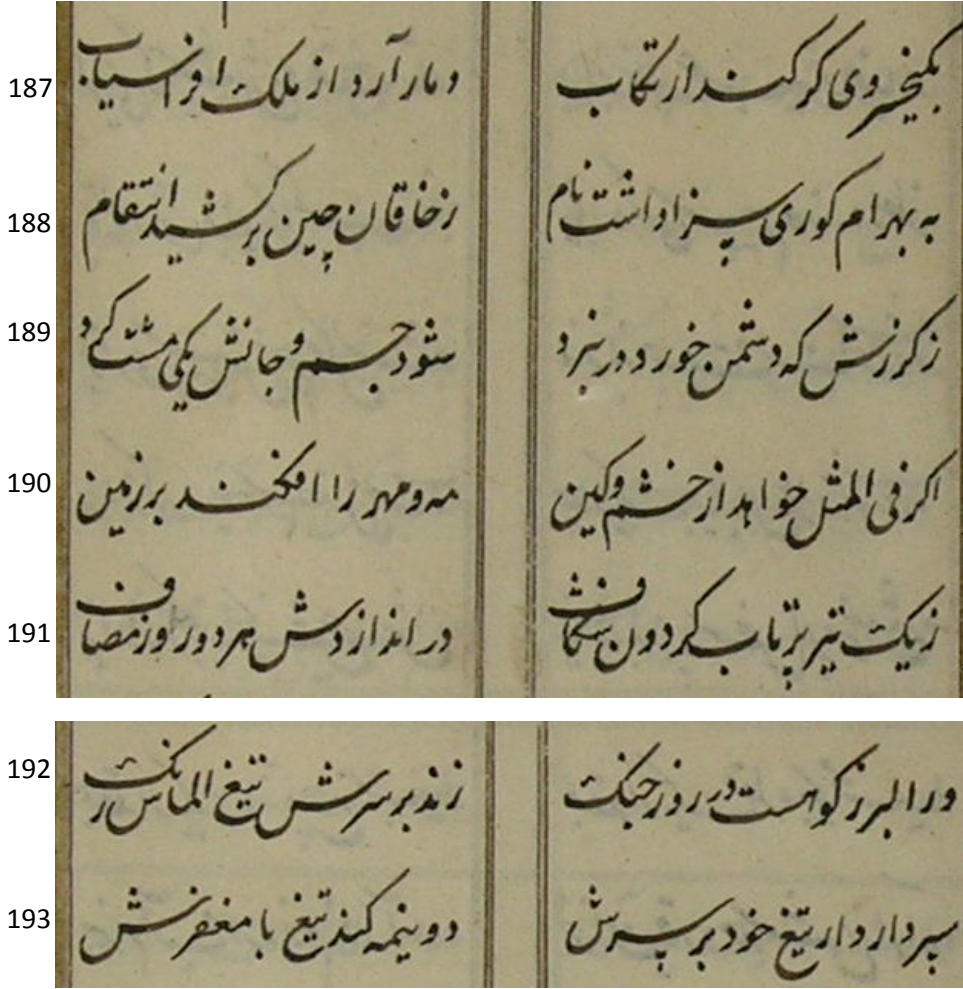 187 بکیخسروی کر کند ارتکاب دمار آرد از ملک افراسیاب
188 به بهرام کوری سزاداشت نام زخاقان چین برکشید انتقام
189 زکرزش که دشمن خورد در نبرد شود جسم و جانش یکی مشت کرد
190 اکر فی المثل خواهد از خشم وکین مه و مهر را افکند بر زمین
191 زیک تیر پرتاب کردون شکاف در اندازدش هر دو روز مصاف
192 ور البرز کوهست در روز جنک زند بر سرش تیغ الماس رنک
193 سپر دار دار تیغ خود بر سرش دو نیمه کند تیغ با مغفرش